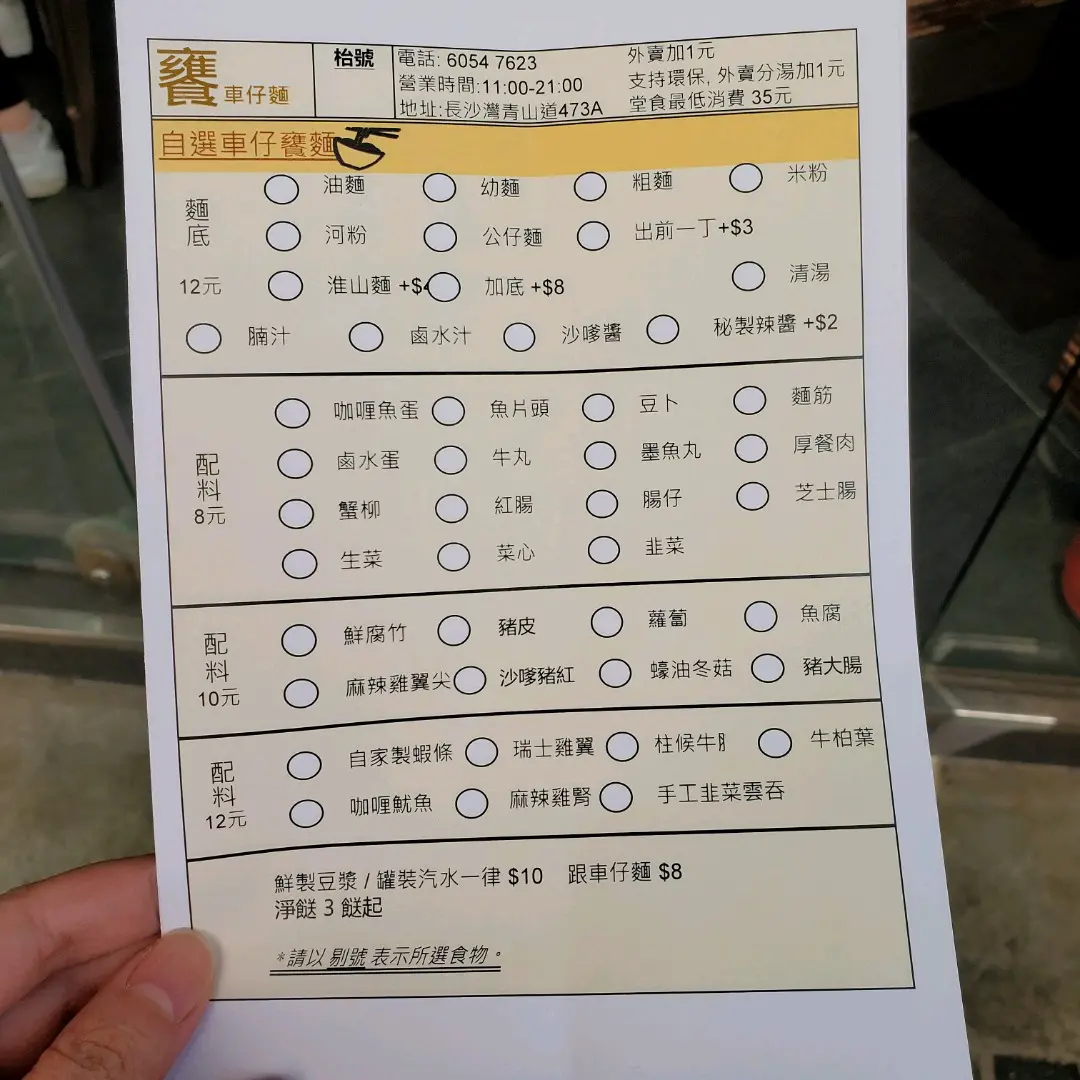 饔 車仔麵
枱號
電話: 6054 7623
營業時間:11:00-21:00
地址:長沙灣青山道473A
外賣加1元
支持環保, 外賣分湯加1元
堂食最低消費 35元
自選車仔饔麵
麵底
12元
油麵 幼麵 粗麵 米粉
河粉 公仔麵 出前一丁+$3
淮山麵 +$4 加底 +$8 清湯
腩汁 鹵水汁 沙嗲醬 秘製辣醬 +$2
配料
8元
咖喱魚蛋 魚片頭 豆卜 麵筋
鹵水蛋 牛丸 墨魚丸 厚餐肉
蟹柳 紅腸 腸仔 芝士腸
生菜 菜心 韭菜
配料
10元
鮮腐竹 豬皮 蘿蔔 魚腐
麻辣雞翼尖 沙嗲豬紅 蠔油冬菇 豬大腸
配料
12元
自家製蝦條 瑞士雞翼 柱候牛 牛柏葉
咖喱魷魚 麻辣雞腎 手工韭菜雲吞
鮮製豆漿 / 罐裝汽水一律 $10 跟車仔麵 $8
淨餸 3 餸起
*請以 剔號 表示所選食物。